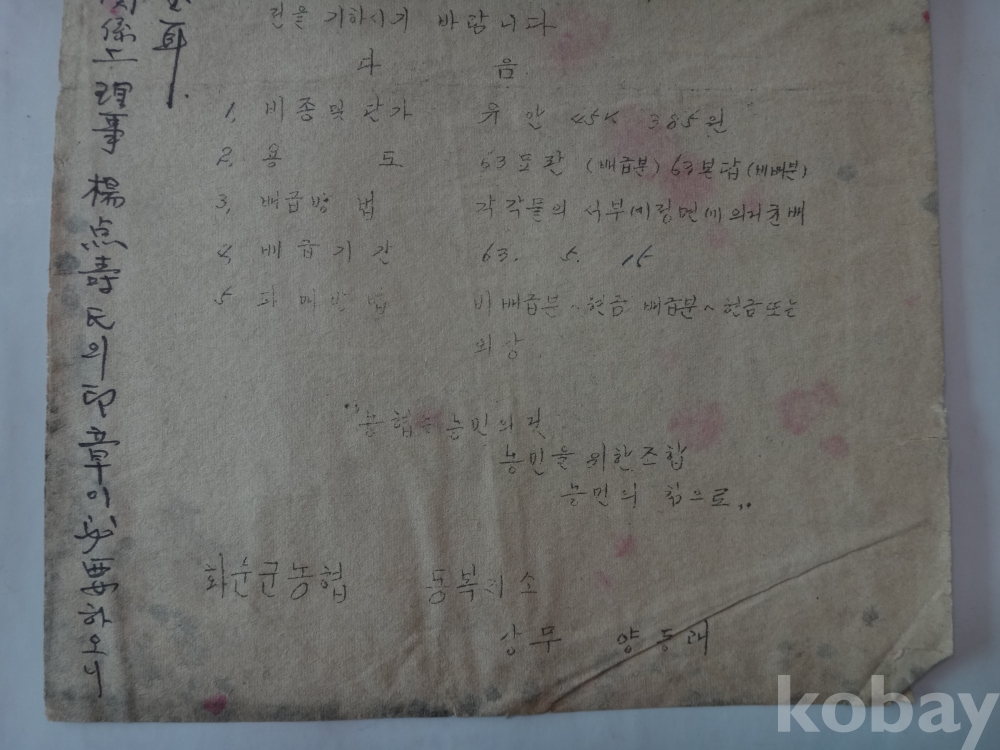 전을 기하시기 바랍니다
다 음
1, 비종 및 단가 유 안 45K 385원
2, 용 도 63도판 (배급분) 63본답 (비배분)
3, 배급방 법 각각물의
4, 배급기간 63. 5. 15
5 판매방법 비배급분~현금 배급분~현금또는
외상
"농협은 농민의 것
농민을 위한조합
농민의 힘으로"
화순군농협 동복지소
상무 양동래
係上 理事 楊点壽氏의 印章이 必要하오니
耳.
kobay